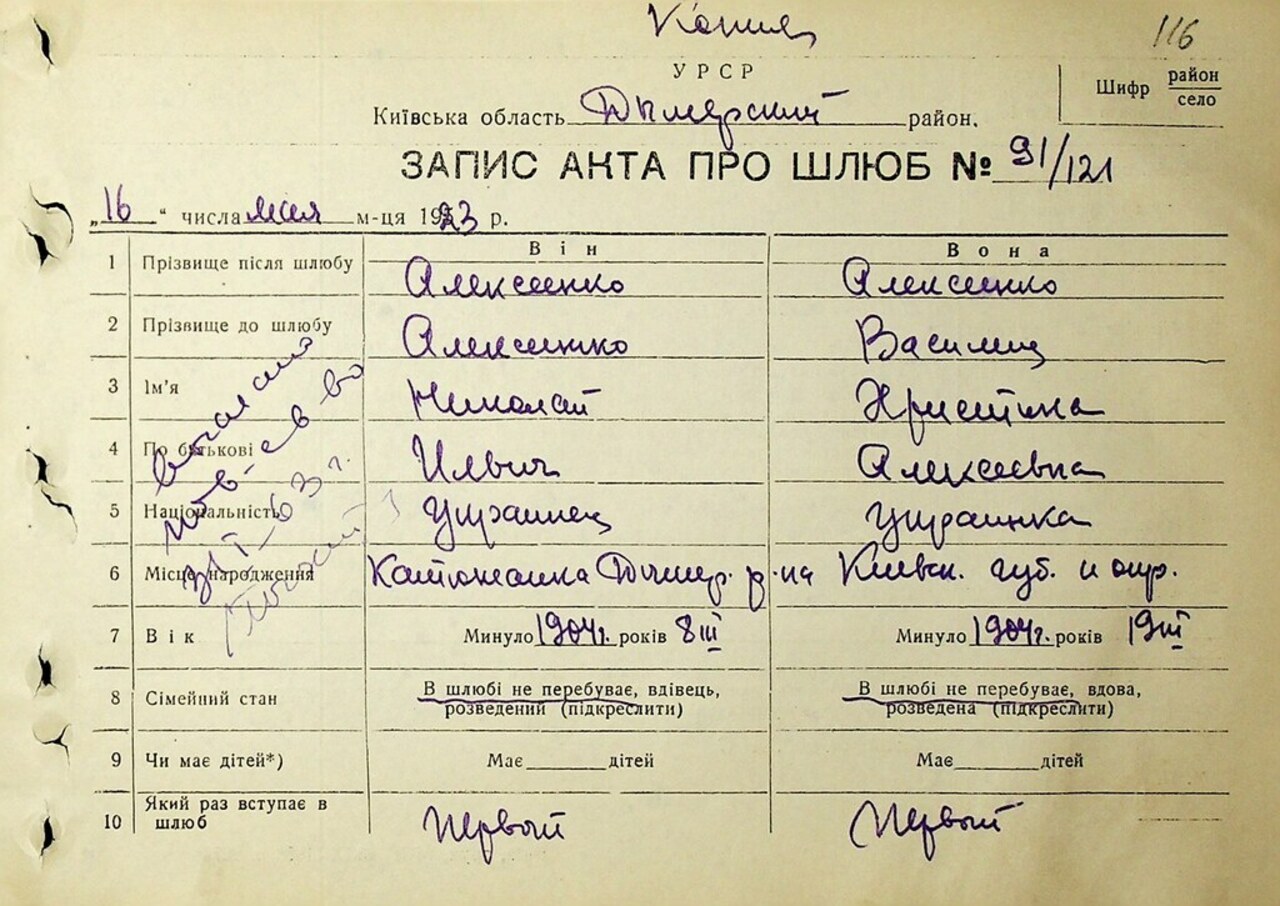 Копия
116
УРСР
Шифр район
село
Київська область Дымерский район.
ЗАПИС АКТА ПРО ШЛЮБ № 91/121
„16“ числа мая м-ця 1923 р.
Він Вона
1 Прізвище після шлюбу Алексеенко Алексеенко
2 Прізвище до шлюбу Алексеенко Василец
3 Ім'я Николай Христина
4 По батькові Ильич Алексеевна
5 Національність Украинец Украинка
6 Місце народження Катюжанка Дымер. р-на Киевск. губ. и окр.
7 Вік Минуло 1904г. років 8 III Минуло 1904г. років 19 III
8 Сімейний стан В шлюбі не перебуває, вдівець, розведений (підкреслити) В шлюбі не перебуває, вдова, розведена (підкреслити)
9 Чи має дітей*) Має дітей Має дітей
10 Який раз вступає в шлюб Первый Первый
выслано
пов. св-во
63 г.